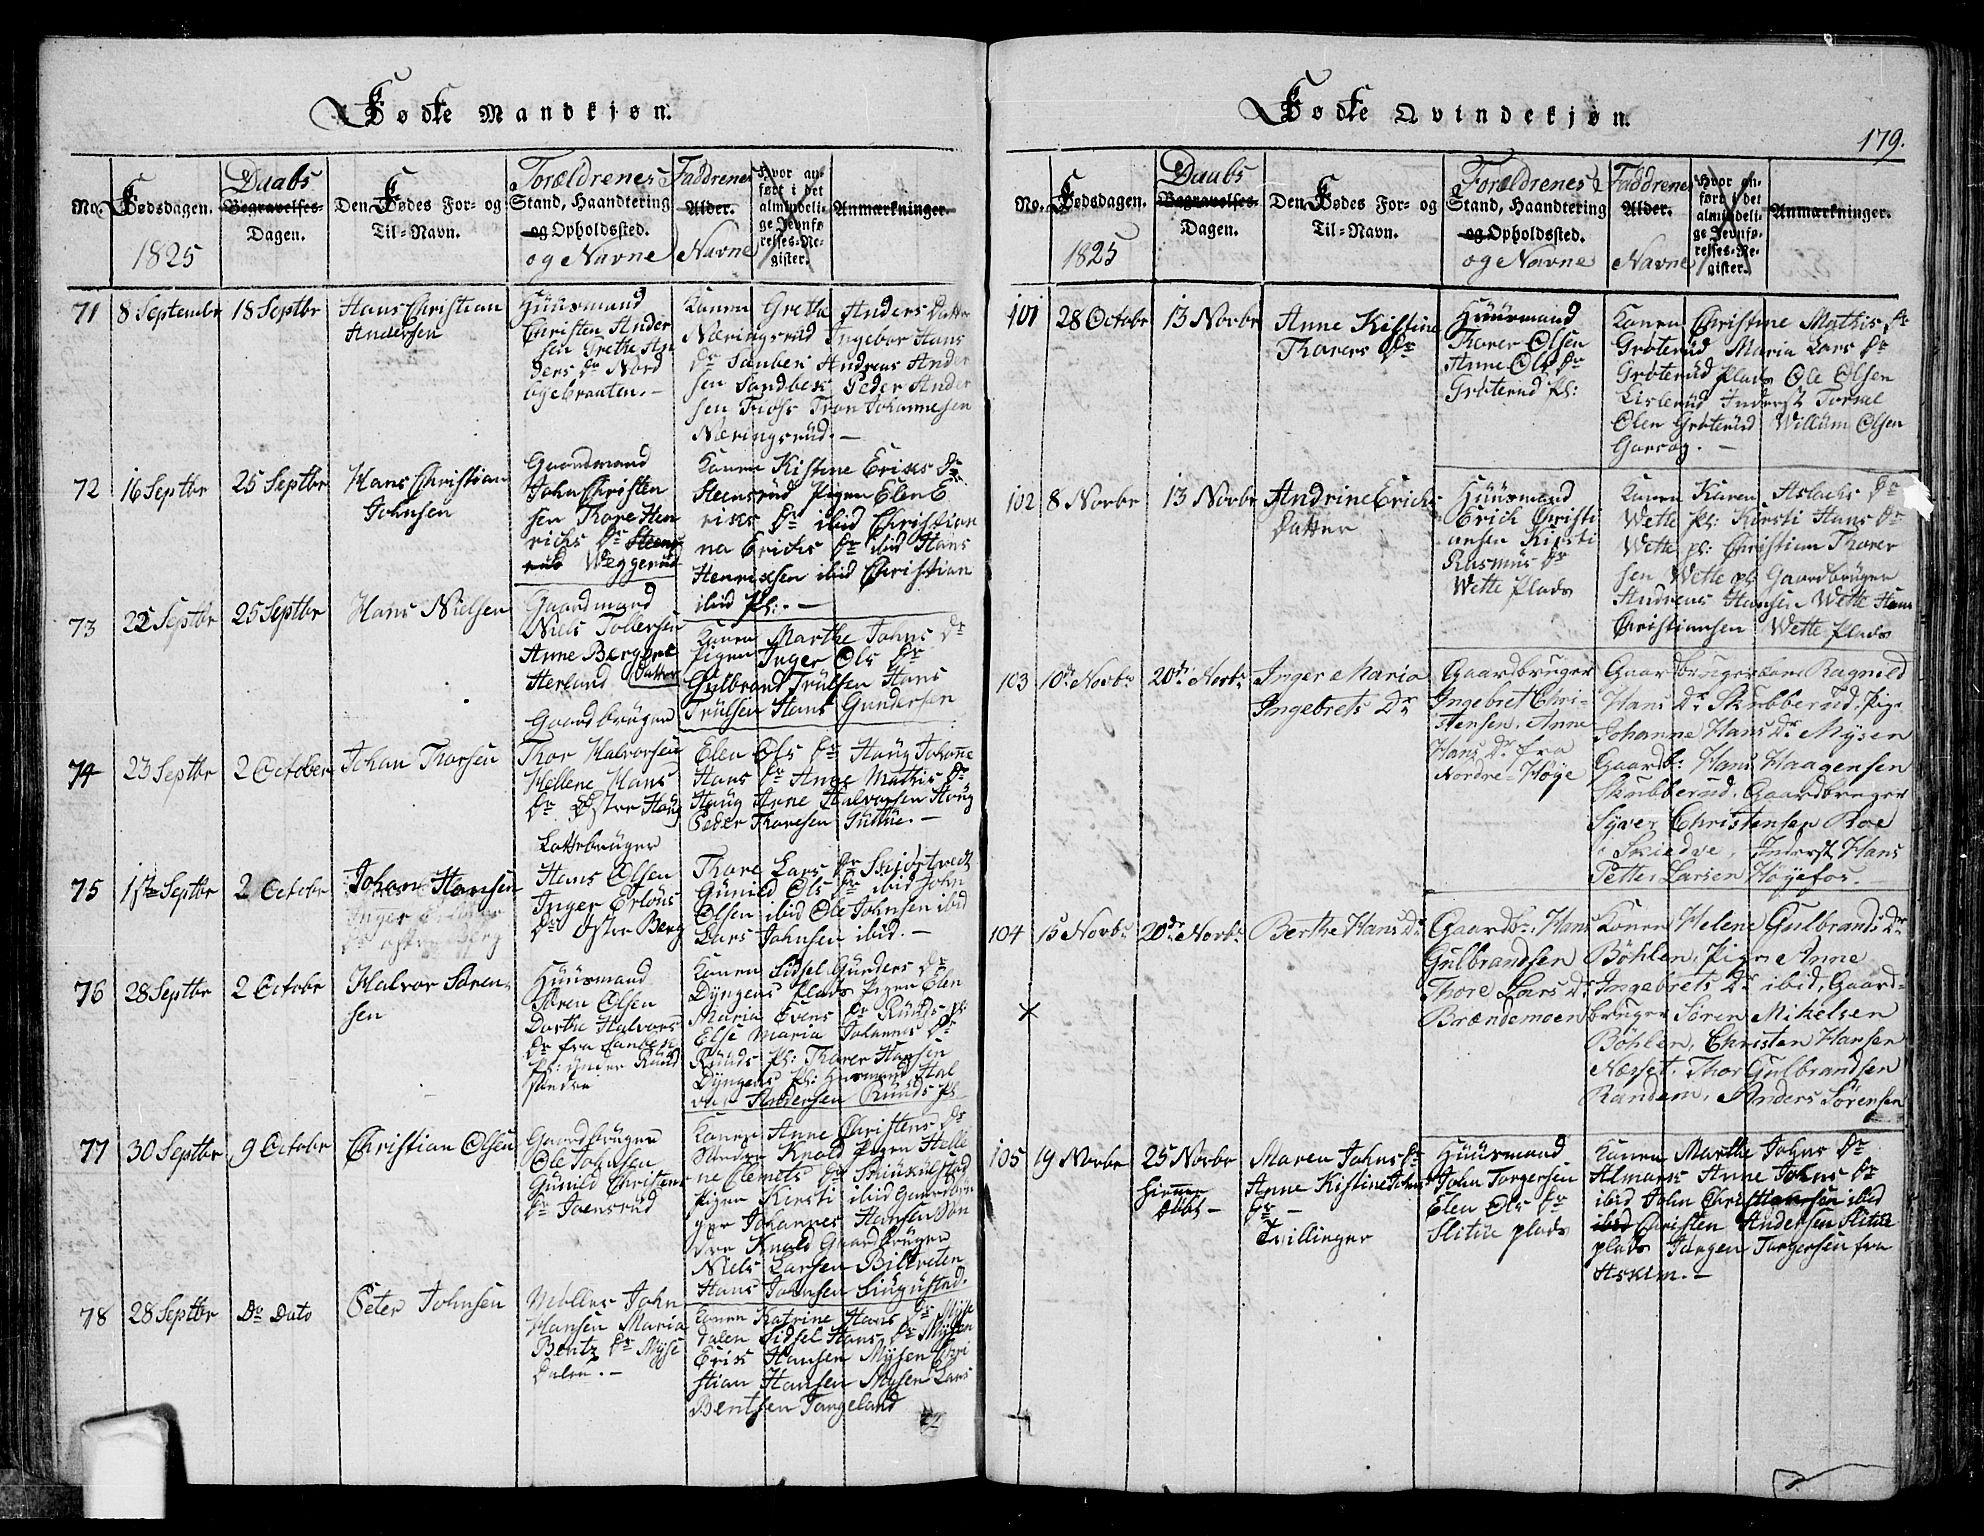 Fødte Mandkjøn.
No.
Fødsdagen.
1825
Daabs
Begravelses-
Dagen.
Den Fødes For- og
Til-Navn.
Forældrenes
Stand, Haandtering
og Opholdssted.
og Navne
Faddrenes
Alder.
Navne
Hvor an-
ført i det
almindeli-
ge Jevnfø-
relses-Re-
gister.
Anmærkninger.
71
8 Septembr
18 Septbr
Hans Christian
Andersen
Huusmand
Christen Ander
sen Grethe An
ders Dr Nord
Konen Grethe Anders Datter
Næringsrud Ingebor Hans
Dr Sandbek Andreas Ander
sen Sandbek Peder Ander
sen Trøss Tron Johannesen
Næringsrud. —
72
16 Septbr
25 Septbr
Hans Christian
Johnsen
Gaardmand
John Christen
sen Thore Hen
richs Dr Steens
rud Weggerud
Konen Kistine Eriks Dr
Steensrud Pigen Elen E
riks Dr ibid Christian
na Erichs Dr ibid Hans
Henriksen ibid Christian
ibid Pl: —
73
22 Septbr
25 Septbr
Hans Nielsen
Gaardmand
Niels Tollersen
Anne Bergret
Herland Datter
Konen Marthe Johns Dr
Pigen Inger Ols Dr
Gulbrand Trulsen Hans
Trulsen Hans Gundersen
74
23 Septbr
2 October
Johan Thorsen
Gaardbruger
Thor Halvorsen
Hellene Hans
Dr Østre Haug
Elen Ols Dr Haug Johanne
Hans Dr Anne Mathis Dr
Haug Anne Halvorsen Haug
Peder Thoresen Guttue. —
75
1ste Septbr
2 Octobr
Johan Hansen
Hans Olsen
Inger Erlens
Dr Østre Berg
Thore Lars Dr Skiøstvedt
Gunild Ols Dr ibid John
Olsen ibid Ole Johnsen ibid
Lars Johnsen ibid. —
76
28 Septbr
2 Octobr
Halvor Søren-
sen
Huusmand
Søren Olsen
Dorthe Halvors
Dr fra Sandbek
Pl: under Ruud
søndre
Konen Sidsel Gunders Dr
Dyngens Plads Pigen Elen
Maria Evens Dr Ruuds Pl
Else Maria Johannes Dr
Ruuds Pl: Thorer Hansen
Dyngens Pl: Husmand Hal
vor Andersen Ruuds Pl
77
30 Septbr
9 Octobr
Christian Olsen
Gaardbruger
Ole Johnsen
Gunild Christens
Dr Joensrud
Konen Anne Christens Dr
Søndre Knold Pigen Helle
ne Clemets Dr
Pigen Kirsti ibid Gaardbru
ger Johannes Hansen Søn
dre Knold Gaardbruger
Niels Larsen Bilbreten
Hans Johnsen
78
28 Septbr
Do Dato
Peter Johnsen
Møller John
Hansen Maria
Bentz Dr Myse
Dalen. —
Konen Katrine Hans Dr Myse
Dalen Sidsel Hans Dr Mysen
Erik Hansen Mysen Chri
stian Hansen Mysen Lars
Bentsen Torgeland
Fødte Qvindekjøn.
179.
No.
Fødsdagen.
1825
Daabs
Begravelses-
Dagen.
Den Fødes For- og
Til-Navn.
Forældrenes
Stand, Haandtering
og Opholdssted.
og Navne
Faddrenes
Alder.
Navne
Hvor an-
ført i det
almindeli-
ge Jevnfø-
relses-Re-
gister.
Anmærkninger.
101
28 Octobr
13 Novbr
Anne Kistine
Thorers Dr
Huusmand
Thorer Olsen
Anne Ols Dr
Groterud Pl:
Konen Christine Mathis Dr
Groterud Maria Lars Dr
Groterud Plads Ole Olsen
Lislerud Inderst Torval
Olen Groterud Willum Olsen
Gorsog. —
102
8 Novbr
13 Novbr
Andrine Erichs
Datter
Huusmand
Erich Christi
ansen Kirsti
Rasmus Dr
Wette Plads
Konen Karen Aslachs Dr
Wette Pl: Kirsti Hans Dr
Wette Pl: Christian Thorer
sen Wette Pl: Gaardbruger
Andreas Hansen Wette Hans
Christiansen Wette Plads
103
10de Novbr
20de Novbr
Inger Maria
Ingebrets Dr
Gaardbruger
Ingebret Chri-
stensen, Anne
Hans Dr fra
Nordre-Høye
Gaardbrugerkone Ragnild
Hans Dr Skubberud, Pige
Johanne Hans Dr Mysen
Gaardb: Hans Haagensen
Skubberud, Gaardbruger
Syver Christensen Roe
i Skiedve, Inderst Hans
Petter Larsen Høyefos.
104
15 Novbr
20de Novbr
Berthe Hans Dr
Gaardbr: Hans
Gulbrandsen
Thore Lars Dr
Brændemoen
Konen Helene Gulbrands Dr
Böhlen, Pige Anne
Ingebrets Dr ibid, Gaard-
bruger Søren Mikelsen
Böhlen, Christen Hansen
Næsset, Thor Gulbrandsen
Randem, Anders Sörensen
105
19 Novbr
25 Novbr
Hiemme
døbt —
Maren Johns Dr
Anne Kistine Johns
Dr —
Tvillinger
Huusmand
John Torgersen
Elen Ols Dr
Slitue plads
Konen Marthe Johns Dr
Almark Anne Johns Dr
ibid John Christiansen ibid
ibid Christen Andersen Slitue
plads Jørgen Torgersen fra
Askim. —